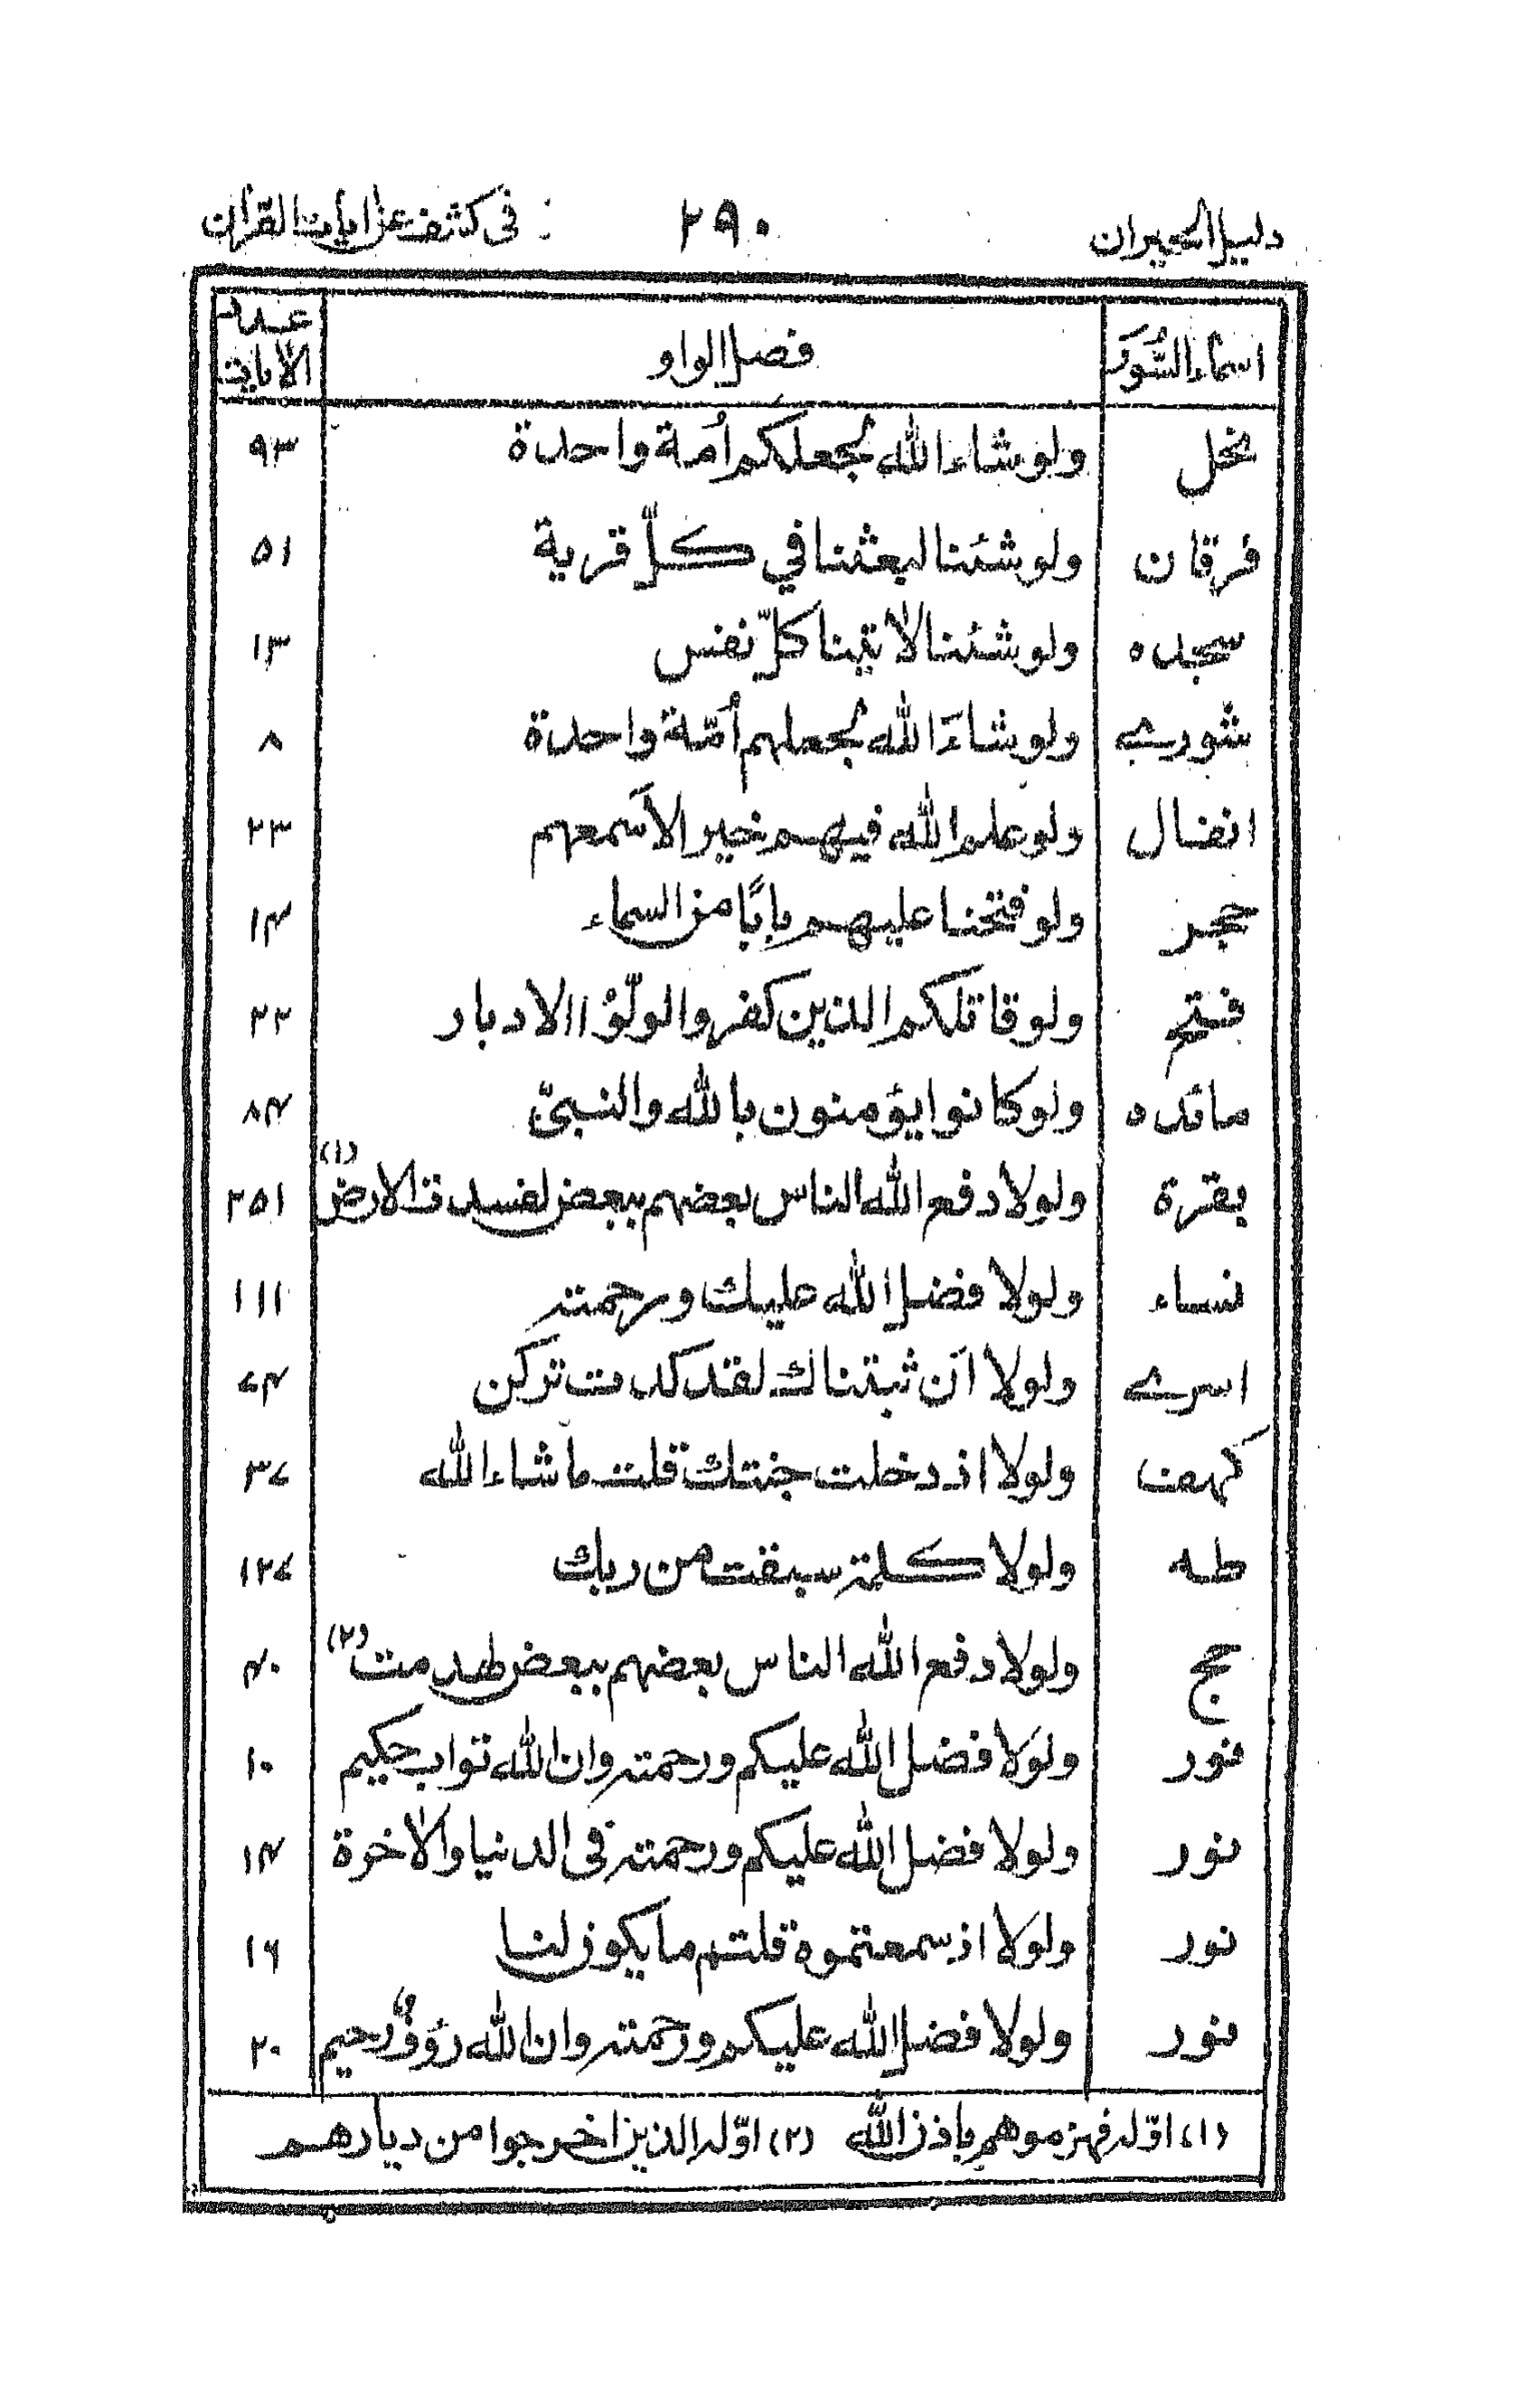 دليل الحيران ٢٩٠ في كشف عن ايات القرآن
اسماء السُّوَر فصل الواو عدد الآيات
نحل ولو شاء الله لجعلكم اُمة واحدة ٩٣
فرقان ولو شئنا لبعثنا في كلّ قرية ٥١
سجده ولو شئنا لآتينا كلّ نفس ١٣
شورے ولو شاءَ الله لجعلهم اُمّة واحدة ٨
انفال ولو علم الله فيهم خيرا لأسمعهم ٢٣
حجر ولو فتحنا عليهم بابًا من السماء ١٤
فتح ولو قاتلكم الذين كفروا لولّوُا الادبار ٢٢
مائده ولو كانوا يؤمنون بالله والنبىّ ٨٤
بقرة ولولا دفع الله الناس بعضهم ببعض لفسدت الارض (١) ٢٥١
نساء ولولا فضل الله عليك ورحمته ١١١
اسرے ولولا اَن ثبتناك لقد كدت تركن ٧٤
كهف ولولا اذ دخلت جنتك قلت ما شاء الله ٣٧
طه ولولا كلمة سبقت من ربك ١٢٧
حج ولولا دفع الله الناس بعضهم ببعض لهدمت (٢) ٤٠
نور ولَولا فضل الله عليكم ورحمته وان الله تواب حكيم ١٠
نور ولولا فضل الله عليكم ورحمته في الدنيا والآخرة ١٤
نور ولَولا اذ سمعتموه قلتم ما يكون لنا ١٦
نور ولولا فضل الله عليكم ورحمته وان الله رؤوفٌ رحيم ٢٠
(١) اوّله فهزموهم باذن الله (٢) اوّله الذين اخرجوا من ديارهم